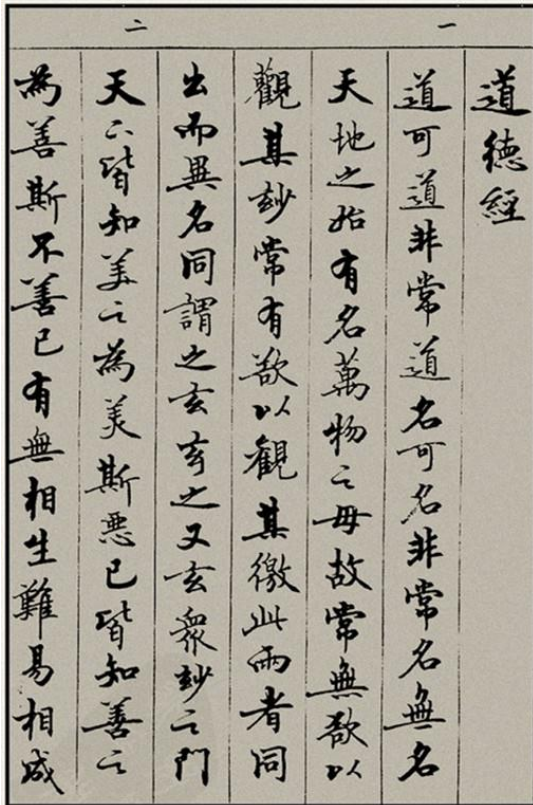 一
二
道德經
道可道非常道名可名非常名無名
天地之始有名萬物之母故常無欲以
觀其玅常有欲以觀其徼此兩者同
出而異名同謂之玄玄之又玄衆玅之門
天下皆知美之為美斯惡已皆知善之
為善斯不善已有無相生難易相成